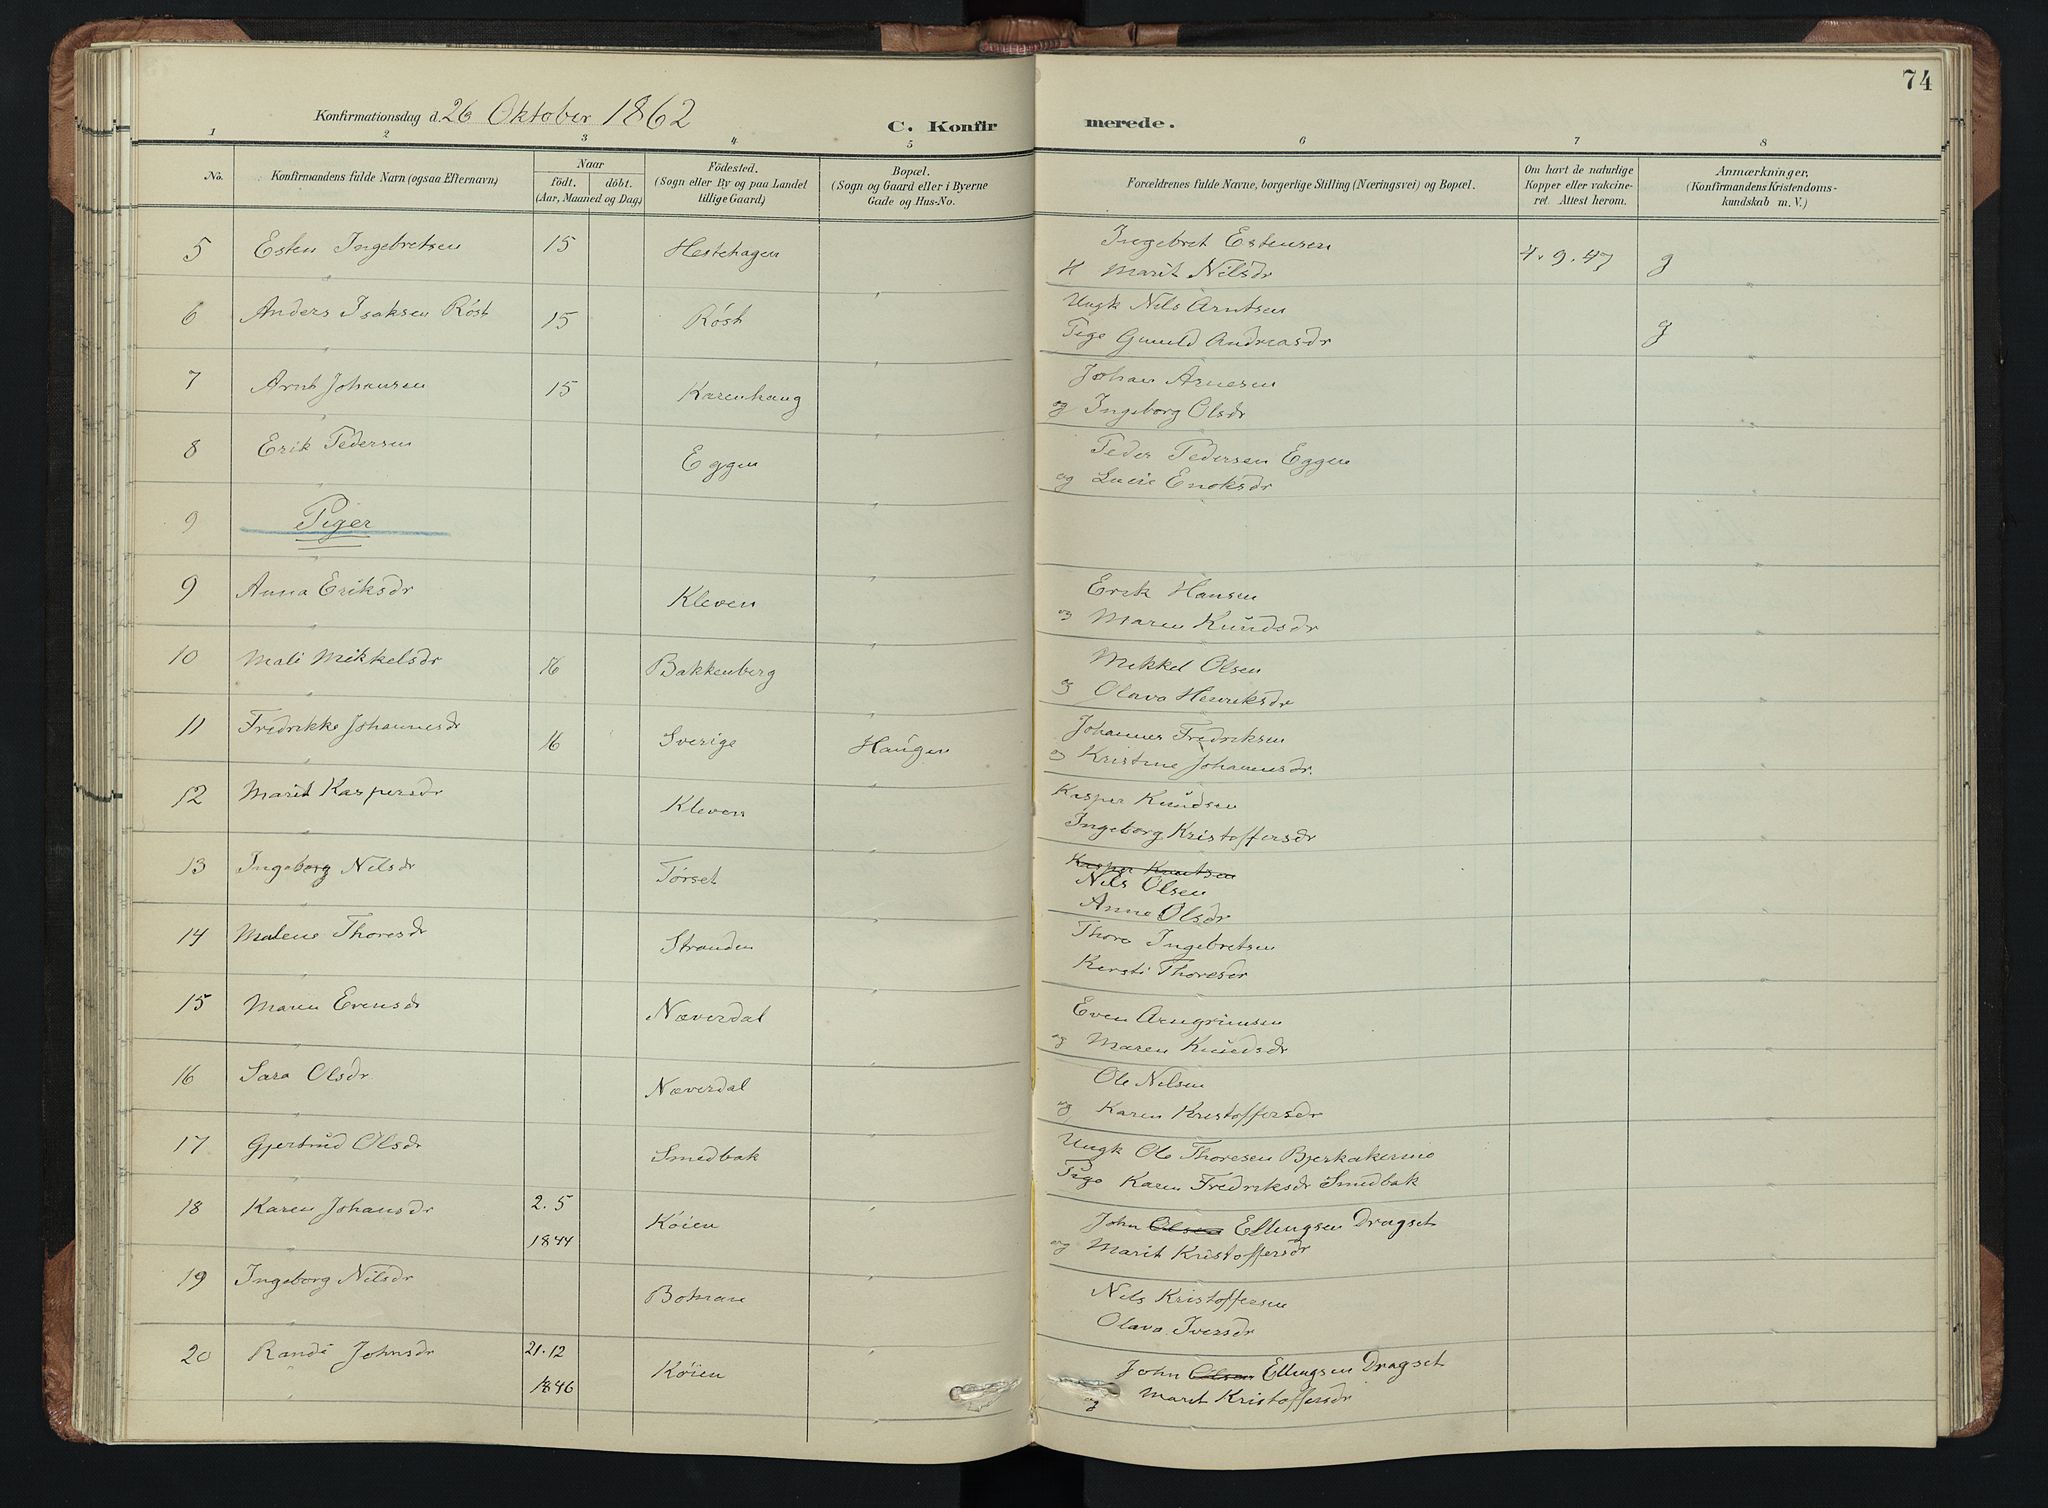 74
Konfirmationsdag d. 26 Oktober 1862
C. Konfirmerede.
1 2 3 4 5 6 7 8
No.
Konfirmandens fulde Navn (ogsaa Efternavn)
Naar
födt. döbt.
(Aar, Maaned og Dag)
Födested.
(Sogn eller By og paa Landet
tillige Gaard)
Bopæl.
(Sogn og Gaard eller i Byerne
Gade og Hus-No.
Forældrenes fulde Navne, borgerlige Stilling (Næringsvei) og Bopæl.
Om havt de naturlige
Kopper eller vakcine-
ret. Attest herom.
Anmærkninger,
(Konfirmandens Kristendoms-
kundskab m. V.)
5 Esten Ingebretsen 15 Hestehagen Ingebret Estensen
Marit Nilsdr 4. 9. 47 g
6 Anders Isaksen Röst 15 Röst Ungk Nils Arntsen
Pige Gunild Andreasdr g
7 Arnt Johansen 15 Karenhaug Johan Arnesen
og Ingeborg Olsdr
8 Erik Pedersen Eggen Peder Pedersen Eggen
og Enoksdr
9 Piger
9 Anna Eriksdr Kleven Erik Hansen
og Maren Knudsdr
10 Mali Mikkelsdr 16 Bakkenberg Mikkel Olsen
og Olava Henriksdr
11 Fredrikke Johannesdr 16 Sverige Haugen Johannes Fredriksen
og Kristine Johannesdr.
12 Marit Kaspersdr Kleven Kasper Knudsen
Ingeborg Kristoffersdr
13 Ingeborg Nilsdr Törset Kasper Knutsen
Nils Olsen
Anne Olsdr
14 Malene Thoresdr Stranden Thore Ingebretsen
Kersti Thoresdr
15 Maren Evensdr Næverdal Even Arngrimsen
og Maren Knudsdr
16 Sara Olsdr. Næverdal Ole Nilsen
og Karen Kristoffersdr
17 Gjertrud Olsdr Smedbak Ungk Ole Thoresen Bjerkakermo
Pige Karen Fredriksdr Smedbak
18 Karen Johansdr 2. 5
1844 Köien John Olsen Ellingsen Dragset
og Marit Kristoffersdr
19 Ingeborg Nilsdr Nils Kristoffersen
Olava Iversdr
20 Randi Johnsdr 21. 12
1846 Köien John Olsen Ellingsen Dragset
og Marit Kristoffersdr